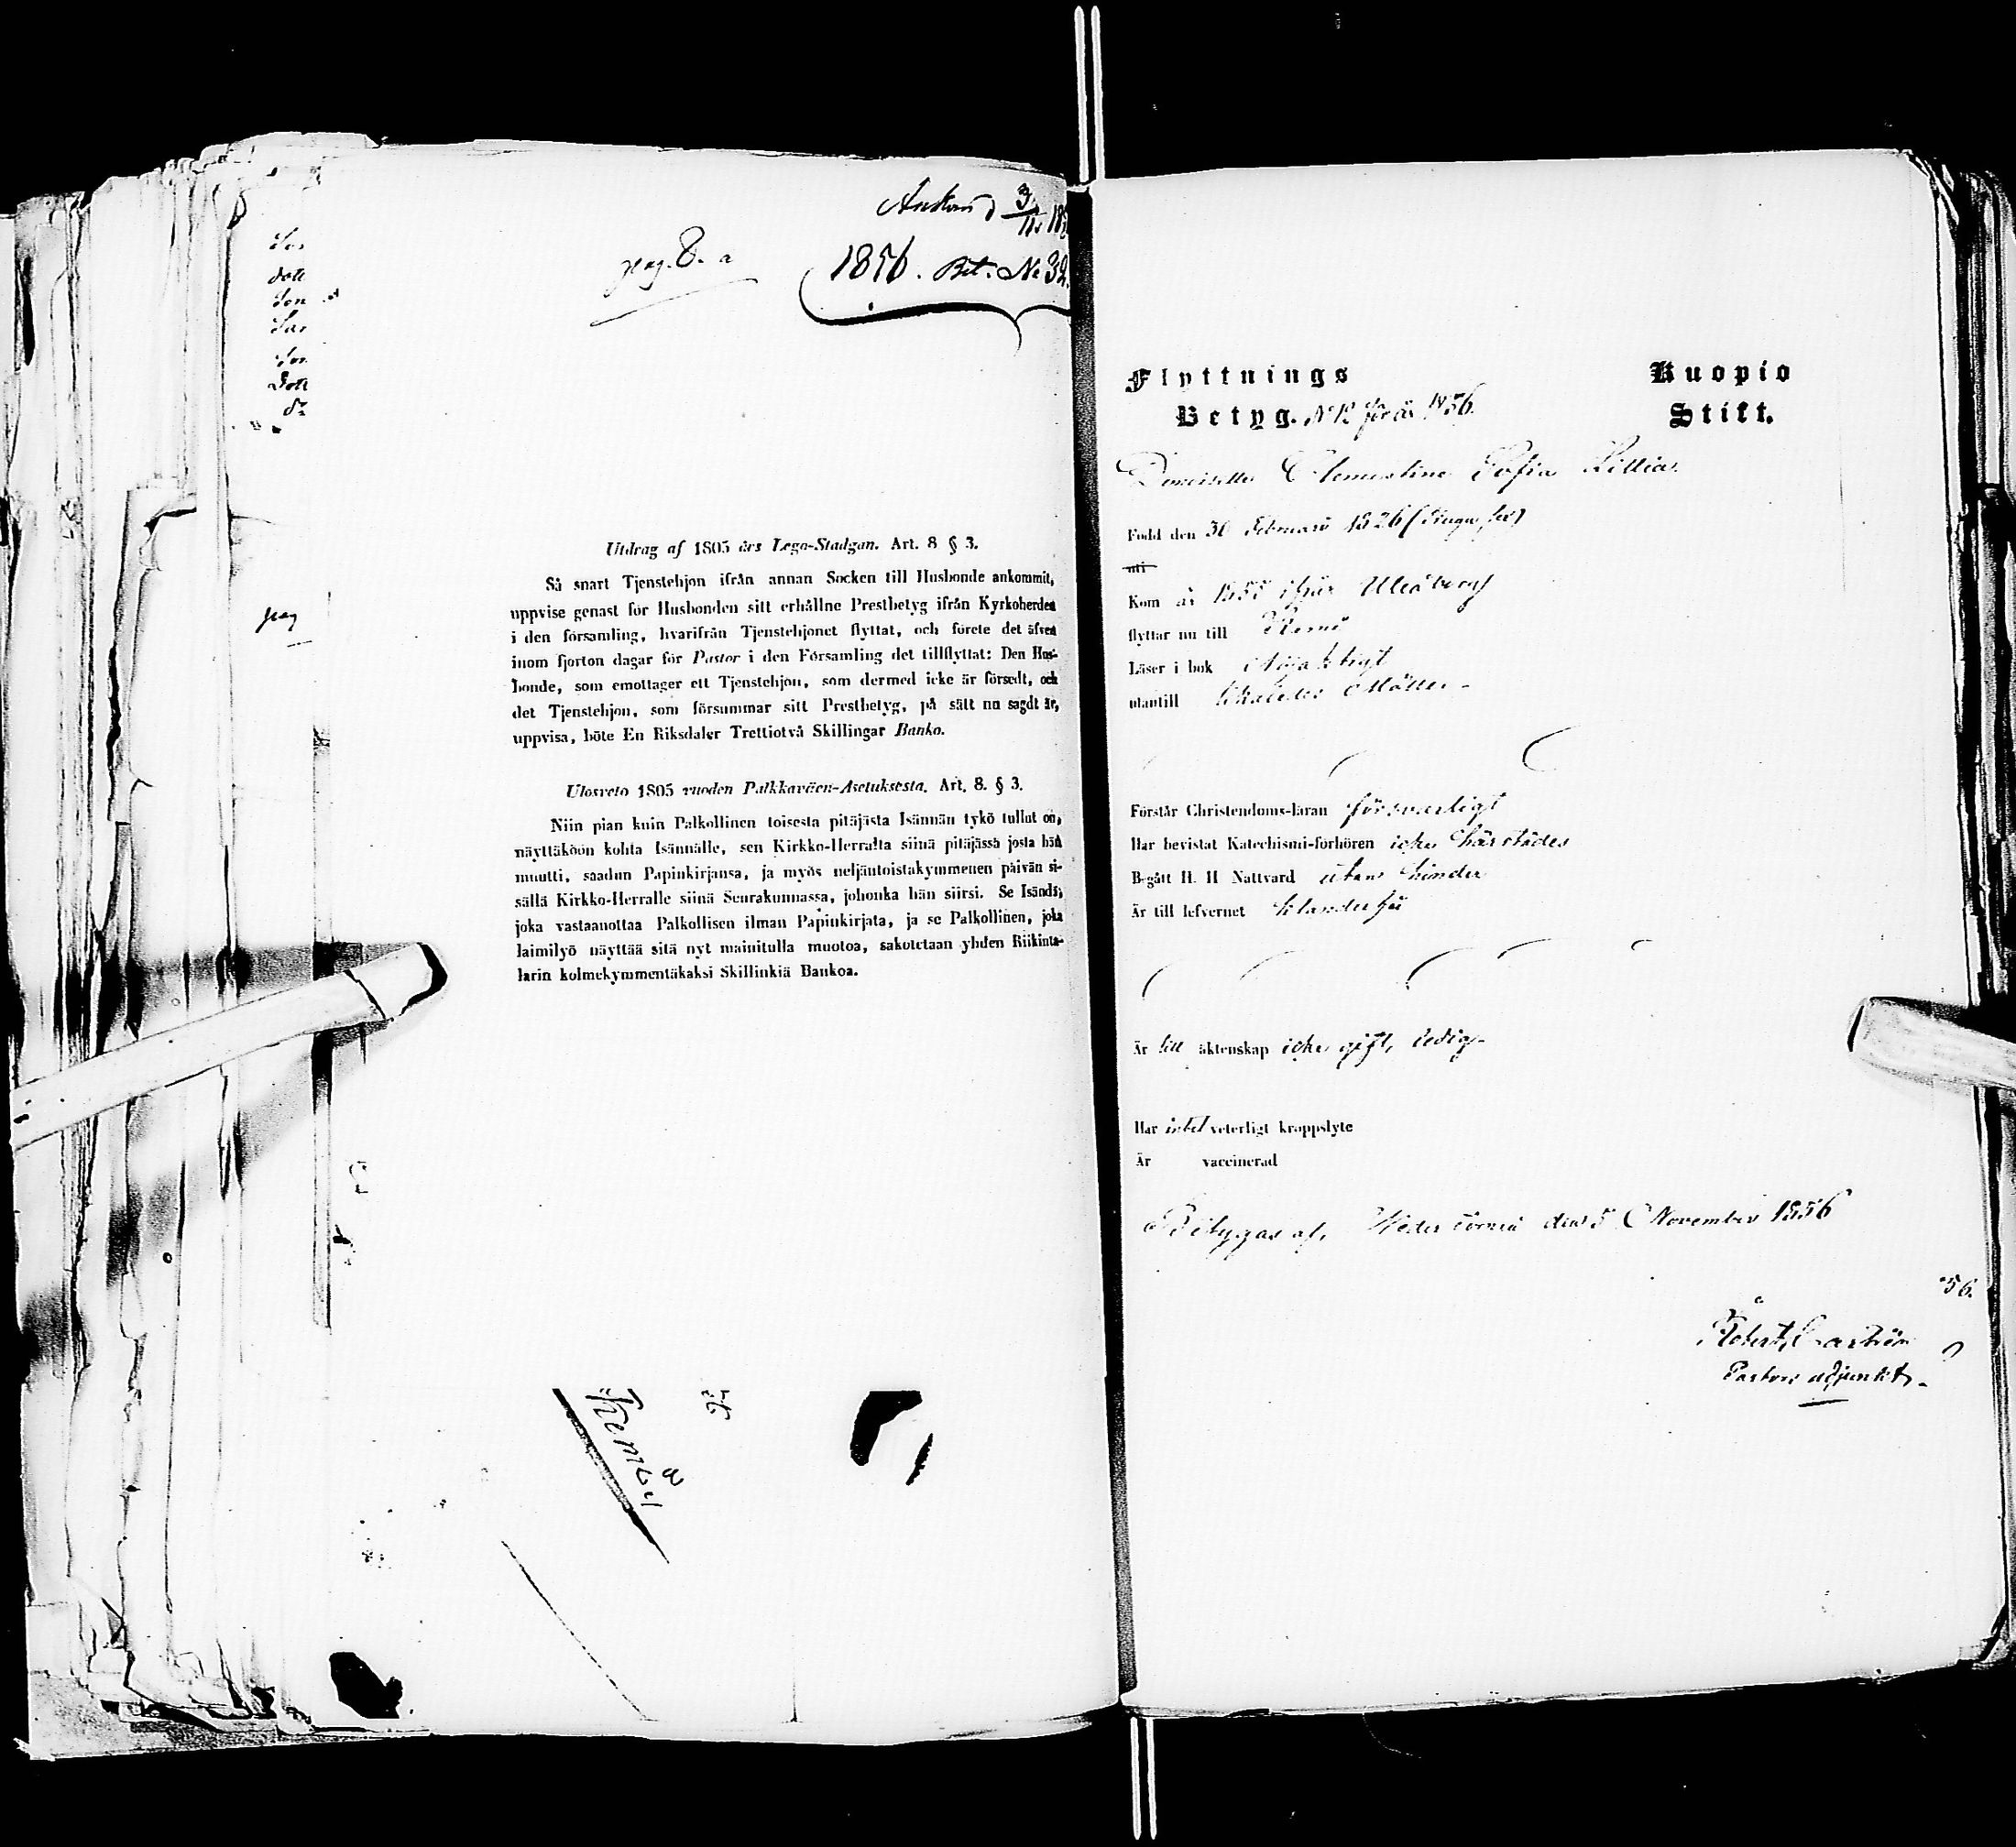 pag. 8. a
1856. Bet. No 32.
Utdrag af 1805 års Lego-Stadgan. Art. 8 § 3.
Så snart Tjenstehjon ifrån annan Socken till Husbonde ankommit,
uppvise genast för Husbonden sitt erhållne Prestbetyg ifrån Kyrkoherden
i den församling, hvarifrån Tjenstehjonet flyttat, och förete det äfven
inom fjorton dagar för Pastor i den Församling det tillflyttat: Den Hus-
bonde, som emottager ett Tjenstehjon, som dermed icke är försedt, och
det Tjenstehjon, som försummar sitt Prestbetyg, på sätt nu sagdt är,
uppvisa, böte En Riksdaler Trettiotvå Skillingar Banko.
Ulosveto 1805 vuoden Palkkaväen-Asetuksesta. Art. 8. § 3.
Niin pian kuin Palkollinen toisesta pitäjästa Isännän tykö tullut on,
näyttäköön kohta Isännälle, sen Kirkko-Herralta siinä pitäjässä josta hän
muutti, saadun Papinkirjansa, ja myös neljäntoistakymmenen päivän si-
sällä Kirkko-Herralle siinä Seurakunnassa, johonka hän siirsi. Se Isändä,
joka vastaanottaa Palkollisen ilman Papinkirjata, ja se Palkollinen, joka
laimilyö näyttää sitä nyt mainitulla muotoa, sakotetaan yhden Riikinta-
larin kolmekymmentäkaksi Skillinkiä Bankoa.
Flyttnings
Betyg. No 12 för år 1856.
Kuopio
Stift.
Sofia
Född den 30 Februari 1826
uti
Kom år 1855 ifrån Uleåborg
flyttar nu till
Läser i bok
utantill
Förstår Christendoms-läran försvarligt
Har bevistat Katechismi-förhören icke härstädes
Begått H. H Nattvard utan hinder
Är till lefvernet klanderfri
Är till äktenskap icke gift, ledig
Har intet veterligt kroppslyte
Är vaccinerad
Betygas af, Neder Torneå den 5 November 1856
56.
Robert
Pastors adjunkt.